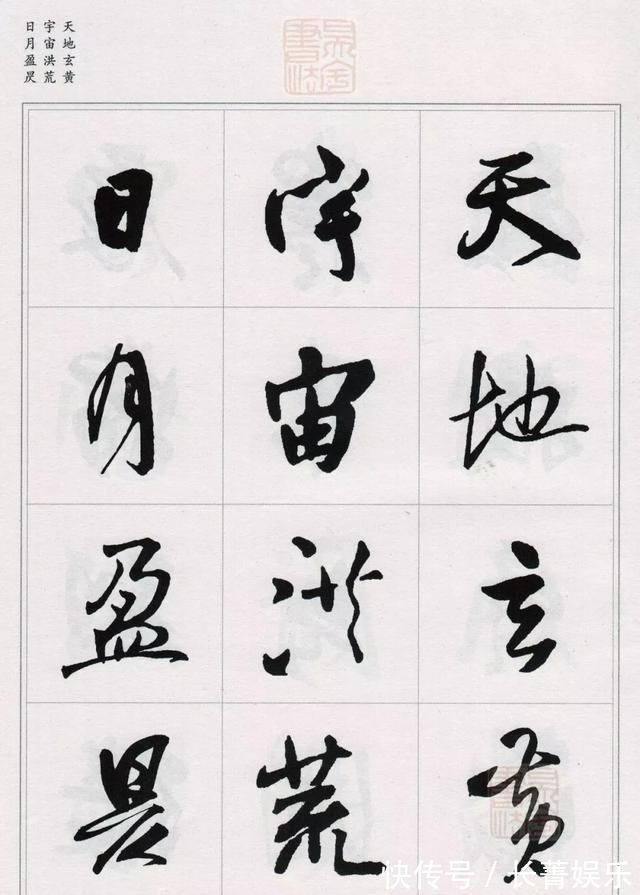 天地玄黄
宇宙洪荒
日月盈昃
天地玄黄
宇宙洪荒
日月盈昃
快传号 / 长菁娱乐